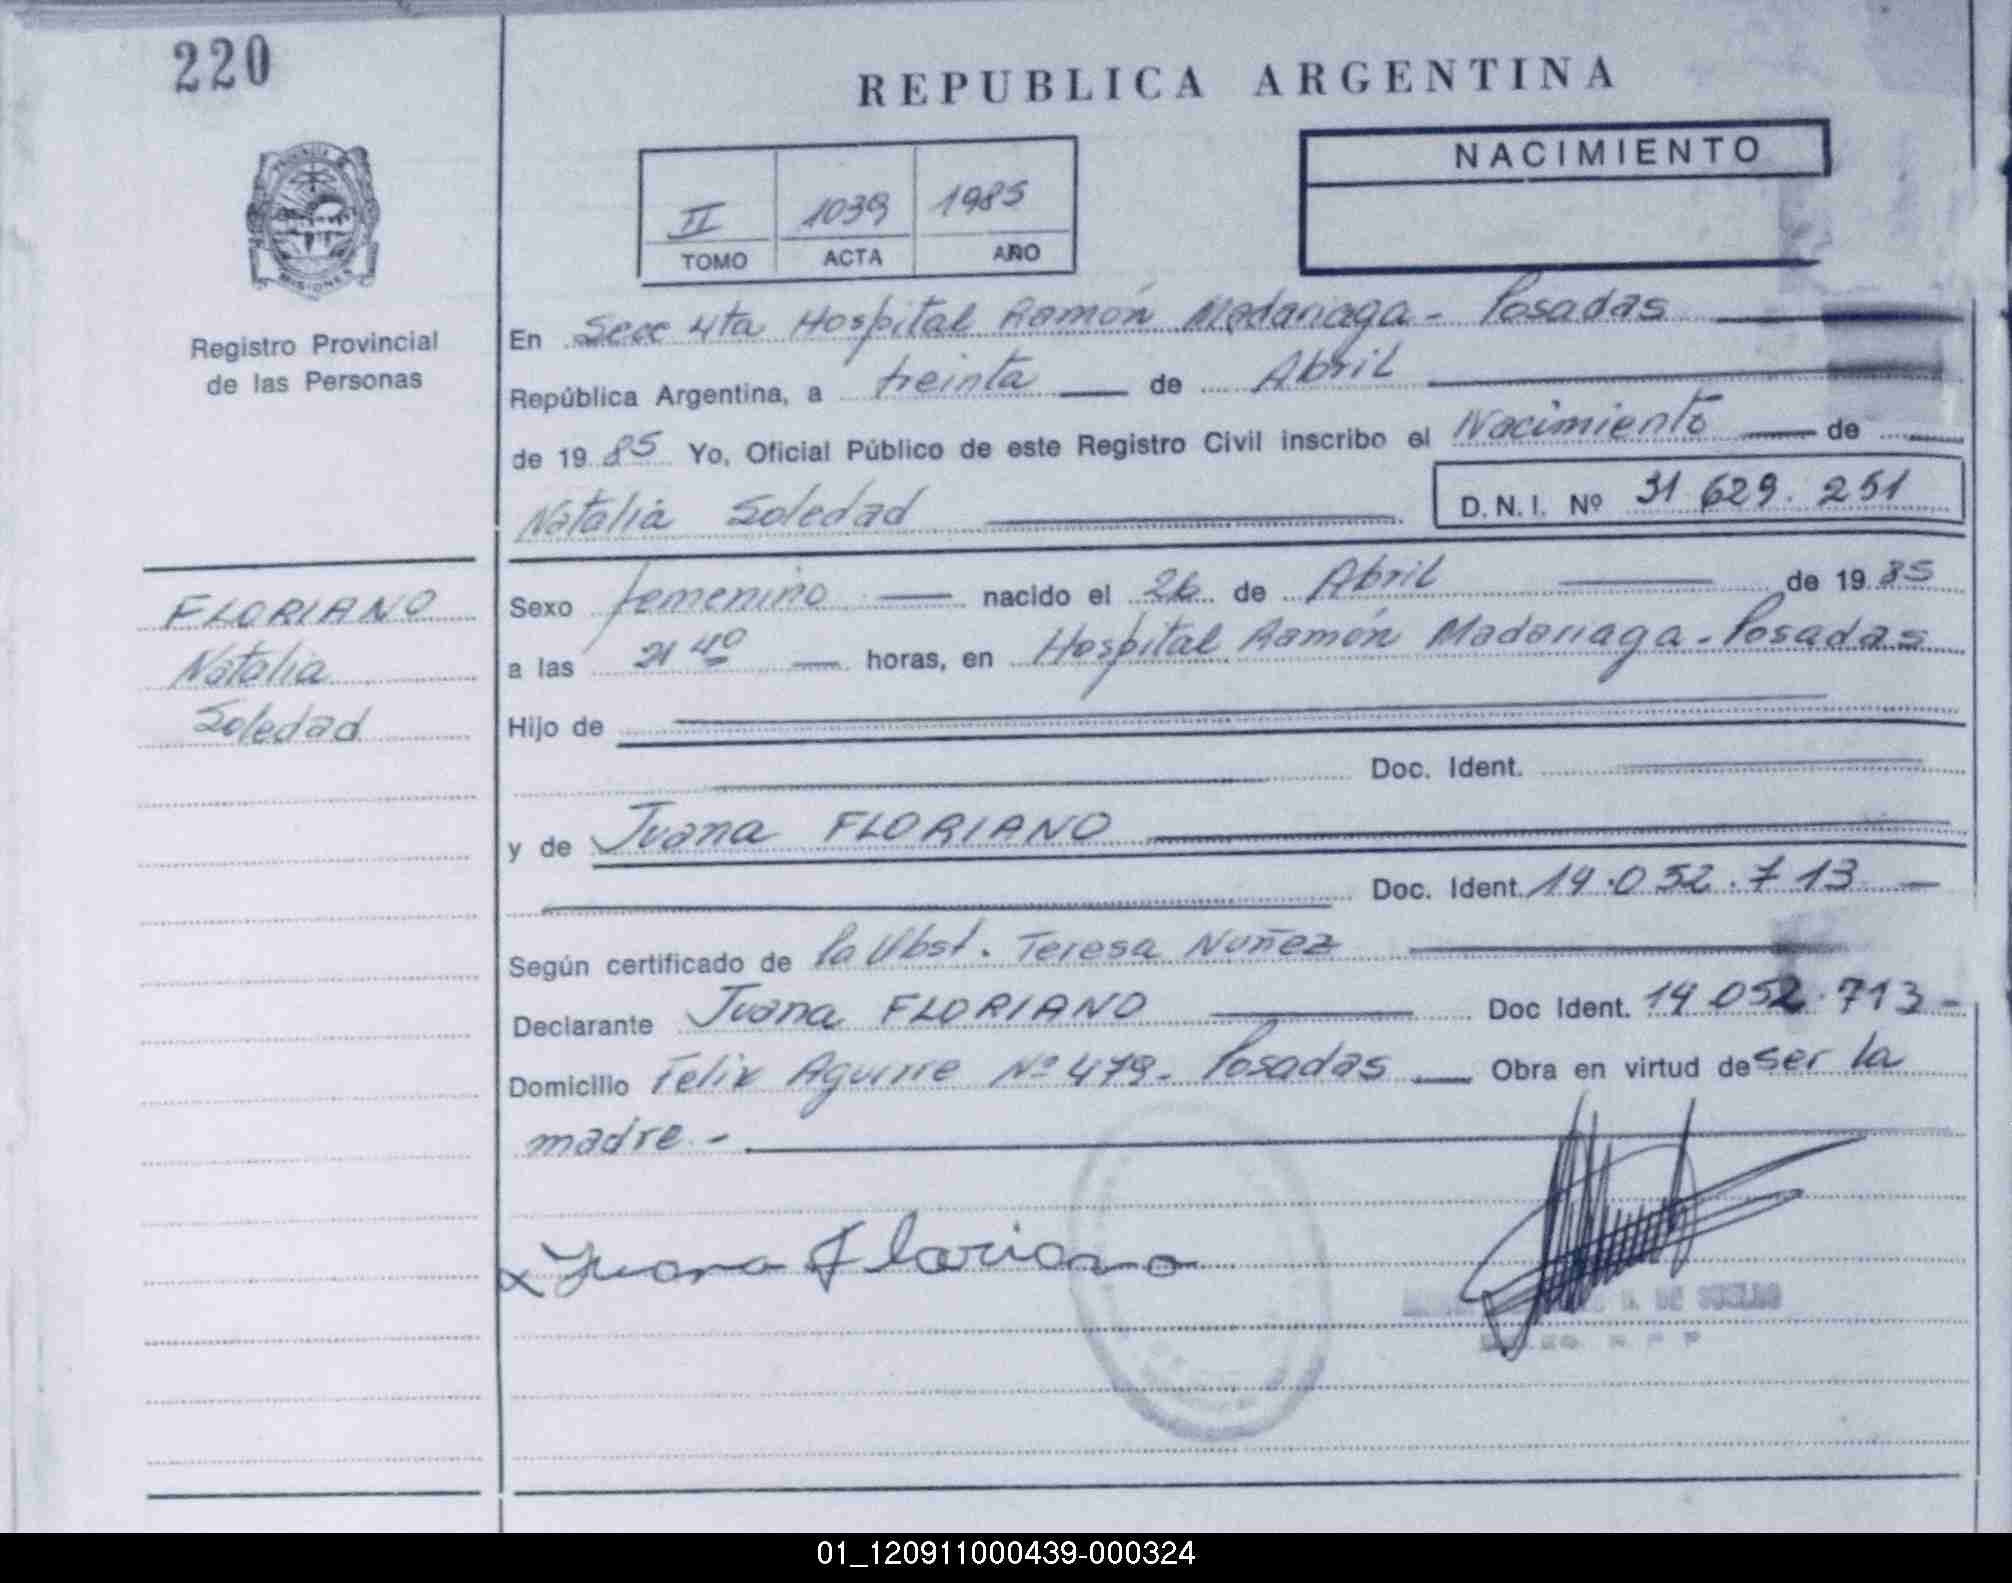 220
REPUBLICA ARGENTINA
NACIMIENTO
II 1039 1985
TOMO ACTA AÑO
PROVINCIA DE
MISIONES
Registro Provincial
de las Personas
En Secc 4ta Hospital Ramón Madariaga - Posadas
República Argentina, a treinta de Abril
de 19 85 Yo, Oficial Público de este Registro Civil inscribo el Nacimiento de
Natalia Soledad D.N.I. Nº 31 629. 251
FLORIANO
Natalia
Soledad
Sexo femenino nacido el 26 de Abril de 19 85
a las 21 40 horas, en Hospital Ramón Madariaga - Posadas
Hijo de
Doc. Ident.
y de Juana FLORIANO
Doc. Ident. 14.052.713 -
Según certificado de la Obst. Teresa Nuñez
Declarante Juana FLORIANO Doc Ident. 14 052.713 -
Domicilio Felix Aguirre Nº 479 - Posadas Obra en virtud de ser la
madre. -
x Juana Floriano
DE SUELDO
01_120911000439-000324